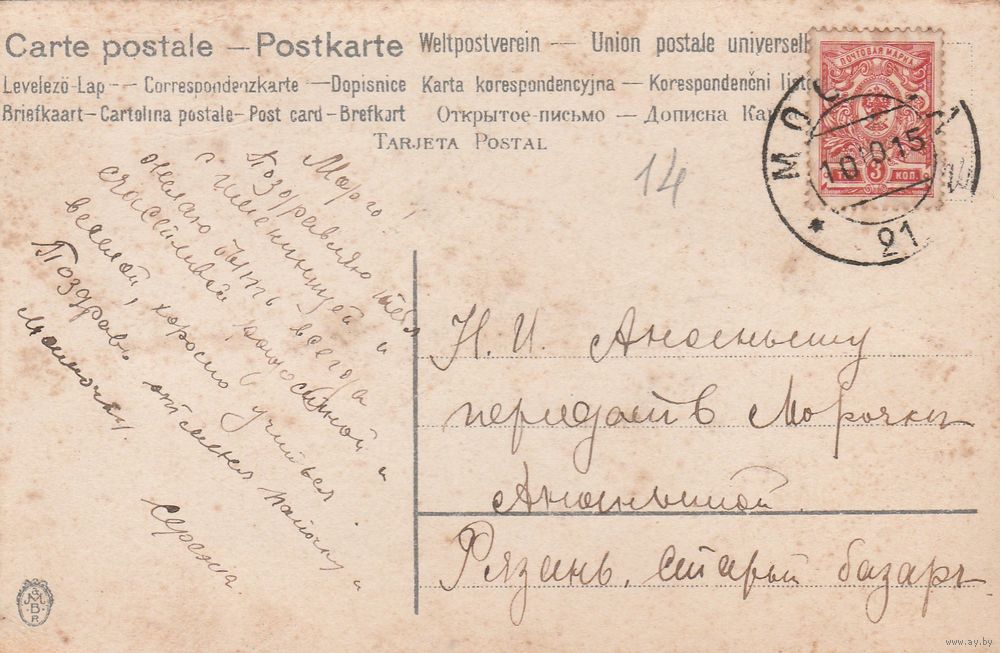 Carte postale — Postkarte Weltpostverein — Union postale universell
Levelező-Lap — Correspondenzkarte — Dopisnice Karta korespondencyjna — Korespondenčni list
Briefkaart — Cartolina postale — Post card — Brefkort Открытое-письмо — Дописна Кар
TARJETA POSTAL
ПОЧТОВАЯ МАРКА
3 КОП.
МОС
10 10 15
21
14
Поздравляю тебя
с именинницей и
желаю быть всегда
счастливой,
веселой, хорошо учиться и
Поздравь от меня папочку и
Мамочку.
Сережа
Н. И. Ананьину
передать
Ананьиной
Рязань, старый базаръ
M
B
R
www.ay.by